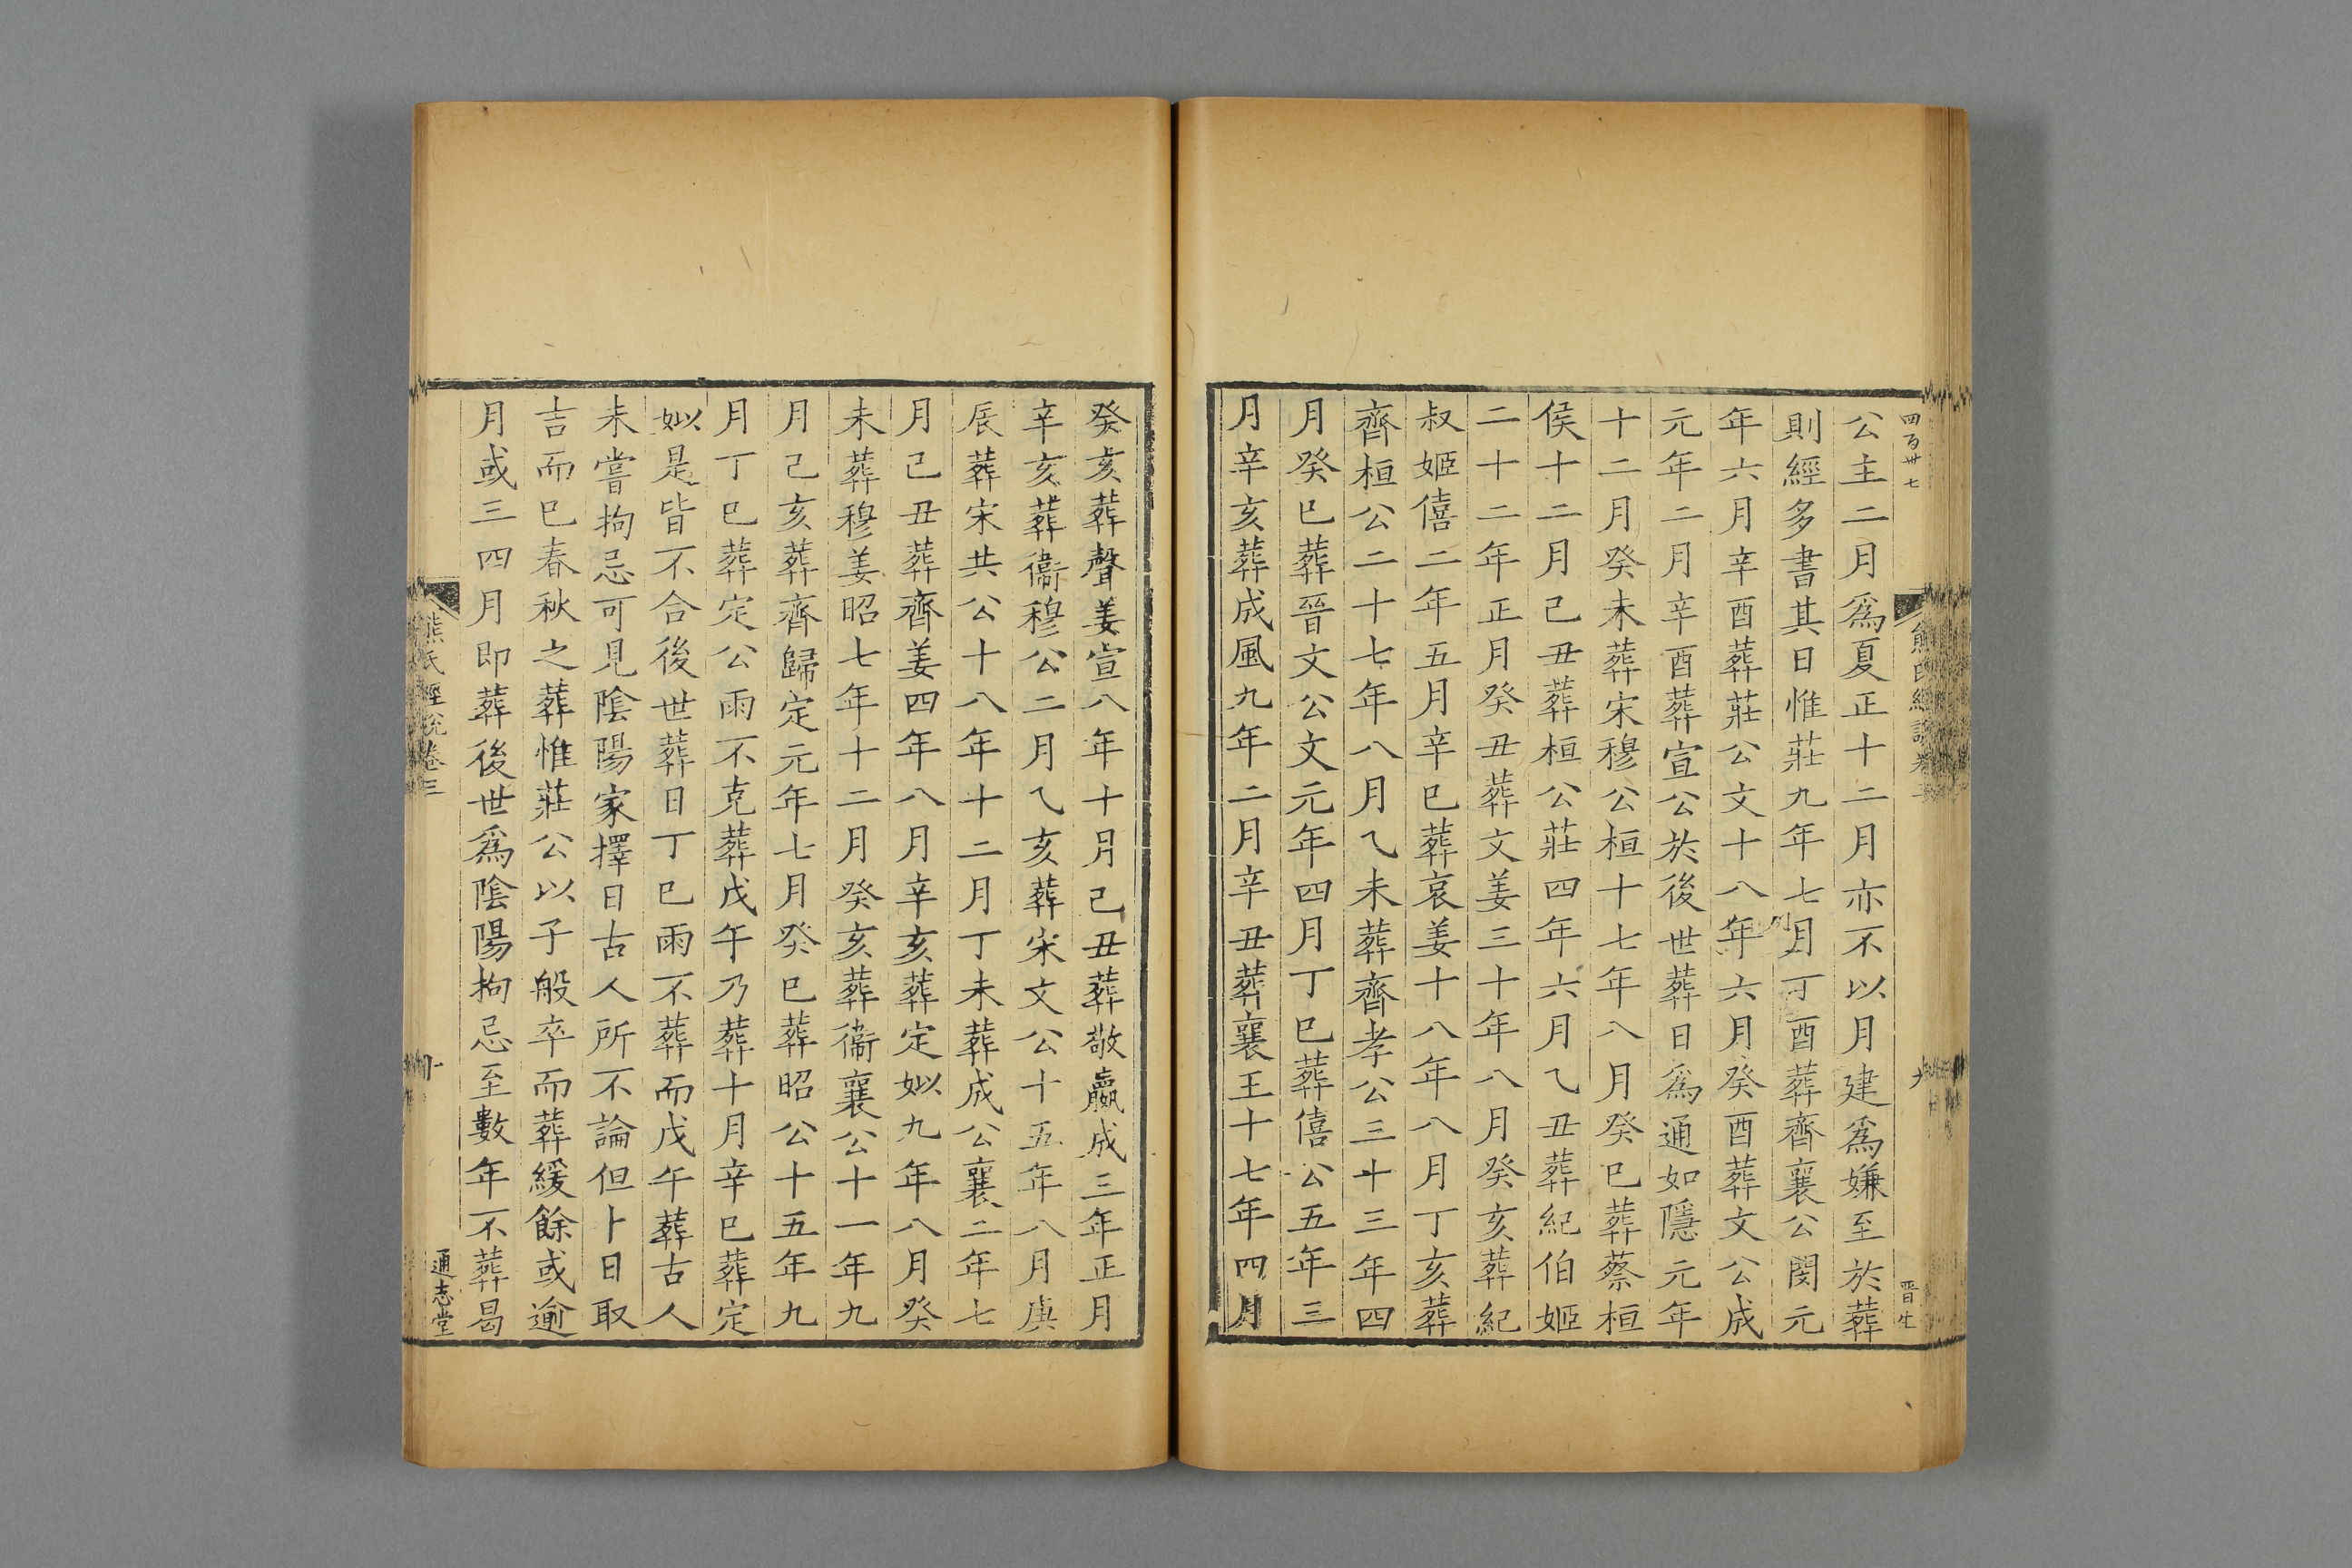 四百卅七
公主二月爲夏正十二月亦不以月建爲嫌至於葬
則經多書其日惟莊九年七月丁酉葬齊襄公閔元
年六月辛酉葬莊公文十八年六月癸酉葬文公成
元年二月辛酉葬宣公於後世葬日爲通如隱元年
十二月癸未葬宋穆公桓十七年八月癸巳葬蔡桓
侯十二月己丑葬桓公莊四年六月乙丑葬紀伯姬
二十二年正月癸丑葬文姜三十年八月癸亥葬紀
叔姬僖二年五月辛巳葬哀姜十八年八月丁亥葬
齊桓公二十七年八月乙未葬齊孝公三十三年四
月癸巳葬晉文公文元年四月丁巳葬僖公五年三
月辛亥葬成風九年二月辛丑葬襄王十七年四月
熊氏經說卷三
九
晋生
癸亥葬聲姜宣八年十月己丑葬敬嬴成三年正月
辛亥葬衞穆公二月乙亥葬宋文公十五年八月庚
辰葬宋共公十八年十二月丁未葬成公襄二年七
月己丑葬齊姜四年八月辛亥葬定姒九年八月癸
未葬穆姜昭七年十二月癸亥葬衞襄公十一年九
月己亥葬齊歸定元年七月癸巳葬昭公十五年九
月丁巳葬定公雨不克葬戊午乃葬十月辛巳葬定
姒是皆不合後世葬日丁巳雨不葬而戊午葬古人
未嘗拘忌可見陰陽家擇日古人所不論但卜日取
吉而巳春秋之葬惟莊公以子般卒而葬緩餘或逾
月或三四月即葬後世爲陰陽拘忌至數年不葬曷
熊氏經說卷三
十
通志堂